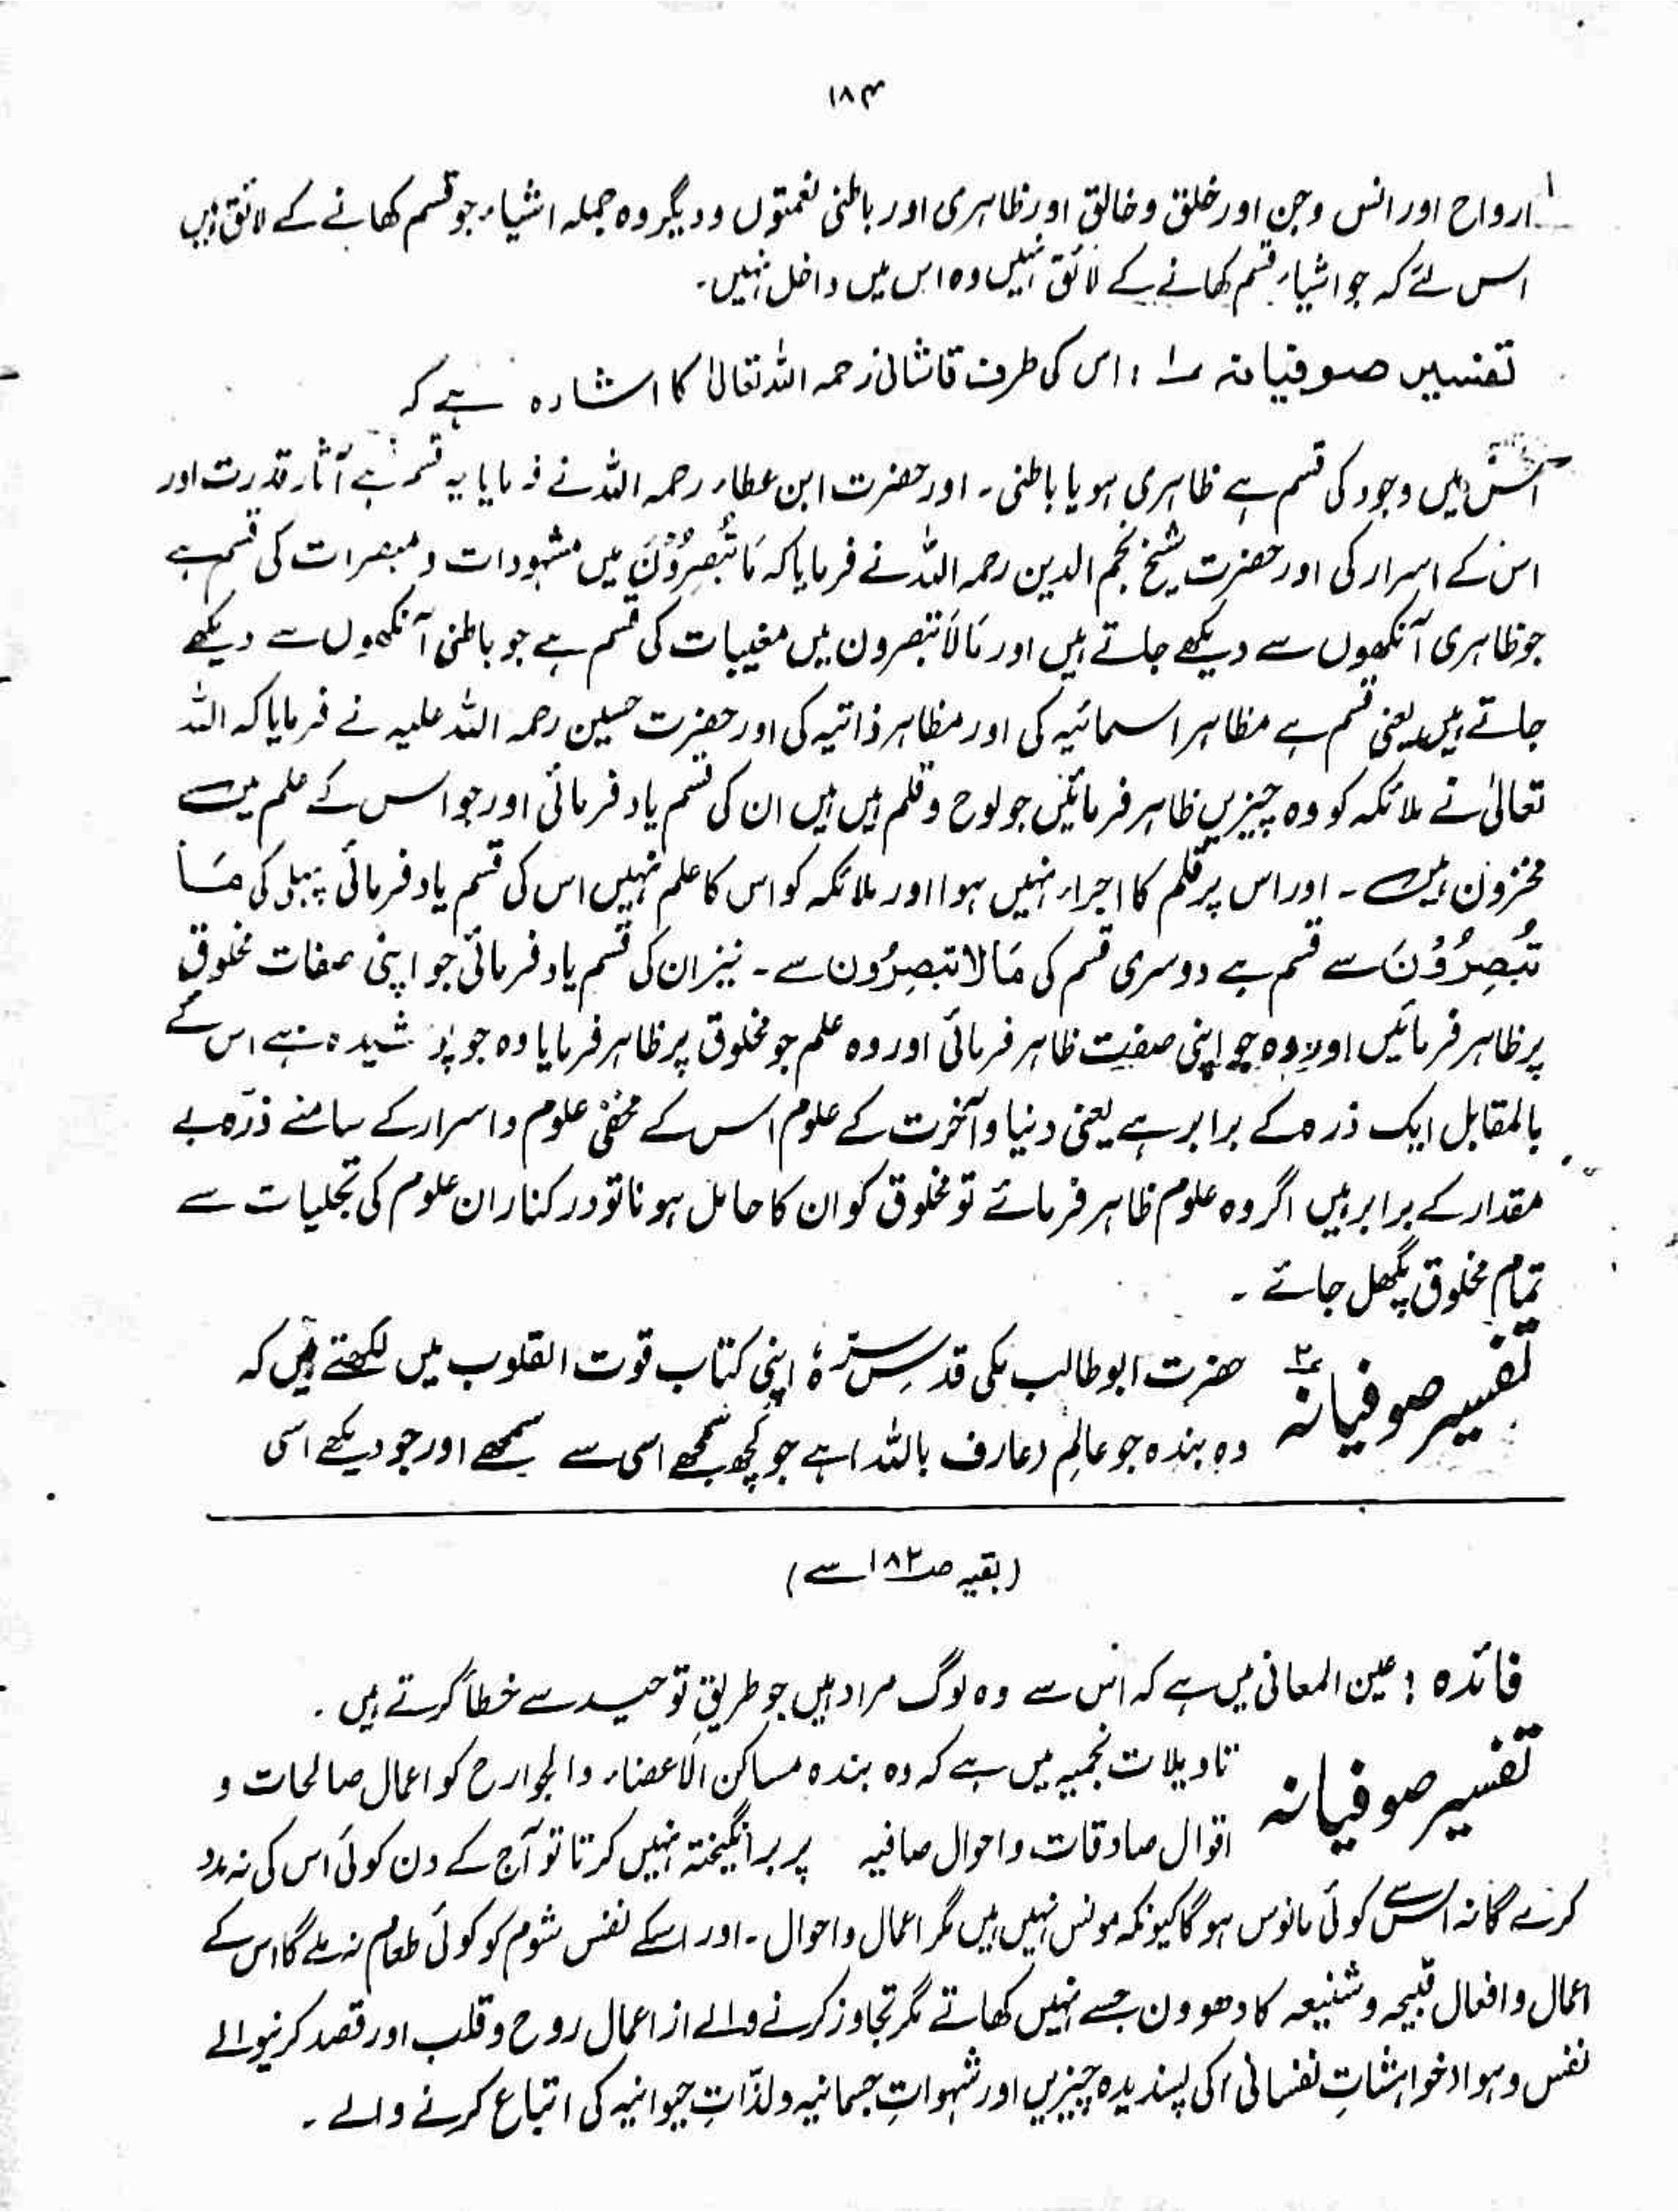 ۱۸۴
ارواح اور انس وجن اور خلق و خالق اور ظاہری اور باطنی نعمتوں ودیگر وہ جملہ اشیاء جو قسم کھانے کے لائق ہیں
اس لئے کہ جو اشیاء قسم کھانے کے لائق نہیں وہ اس میں داخل نہیں۔
تفسیر صوفیانہ ۱ : اس کی طرف قاشانی رحمہ اللہ تعالیٰ کا اشارہ ہے کہ
اس میں وجود کی قسم ہے ظاہری ہو یا باطنی۔ اور حضرت ابن عطاء رحمہ اللہ نے فرمایا یہ قسم ہے آثار قدرت اور
اس کے اسرار کی اور حضرت شیخ نجم الدین رحمہ اللہ نے فرمایا کہ مَا تُبْصِرُوْنَ میں مشہودات و مبصرات کی قسم ہے
جو ظاہری آنکھوں سے دیکھے جاتے ہیں اور مَا لَا تبصرون میں مغیبات کی قسم ہے جو باطنی آنکھوں سے دیکھے
جاتے ہیں یعنی قسم ہے مظاہر اسمائیہ کی اور مظاہر ذاتیہ کی اور حضرت حسین رحمہ اللہ علیہ نے فرمایا کہ اللہ
تعالیٰ نے ملائکہ کو وہ چیزیں ظاہر فرمائیں جو لوح وقلم میں ہیں ان کی قسم یاد فرمائی اور جو اس کے علم میں
مخزون ہیں۔ اور اس پر قلم کا اجراء نہیں ہوا اور ملائکہ کو اس کا علم نہیں اس کی قسم یاد فرمائی پہلی کی مَا
تُبْصِرُوْنَ سے قسم ہے دوسری قسم کی مَا لا تبصِرُون سے۔ نیز ان کی قسم یاد فرمائی جو اپنی صفات مخلوق
پر ظاہر فرمائیں اور وہ جو اپنی صفت ظاہر فرمائی اور وہ علم جو مخلوق پر ظاہر فرمایا وہ جو پوشیدہ ہے اس کے
بالمقابل ایک ذرہ کے برابر ہے یعنی دنیا و آخرت کے علوم اس کے مخفی علوم واسرار کے سامنے ذرّہ بے
مقدار کے برابر ہیں اگر وہ علوم ظاہر فرمائے تو مخلوق کو ان کا حامل ہونا تو درکنار ان علوم کی تجلیات سے
تمام مخلوق پگھل جائے۔
تفسیر صوفیانہ ۲ حضرت ابو طالب مکی قدس سرّہٗ اپنی کتاب قوت القلوب میں لکھتے ہیں کہ
وہ بندہ جو عالِم (عارف باللہ) ہے جو کچھ سمجھے اسی سے سمجھے اور جو دیکھے اسی
(بقیہ صـ ۱۸۲ سے)
فائدہ : عین المعانی میں ہے کہ اس سے وہ لوگ مراد ہیں جو طریقِ توحید سے خطا کرتے ہیں۔
تفسیر صوفیانہ تاویلات نجمیہ میں ہے کہ وہ بندہ مساکن الاعضاء والجوارح کو اعمال صالحات و
اقوال صادقات و احوال صافیہ پر برانگیختہ نہیں کرتا تو آج کے دن کوئی اس کی نہ مدد
کرے گا نہ اس سے کوئی مانوس ہوگا کیونکہ مونس نہیں ہیں مگر اعمال و احوال۔ اور اسکے نفس شوم کو کوئی طعام نہ ملے گا اس کے
اعمال و افعال قبیحہ و شنیعہ کا دھوون جسے نہیں کھاتے مگر تجاوز کرنے والے از اعمال روح و قلب اور قصد کرنیوالے
نفس وہوا (خواہشاتِ نفسانی) کی پسندیدہ چیزیں اور شہواتِ جسمانیہ ولذّاتِ حیوانیہ کی اتباع کرنے والے۔